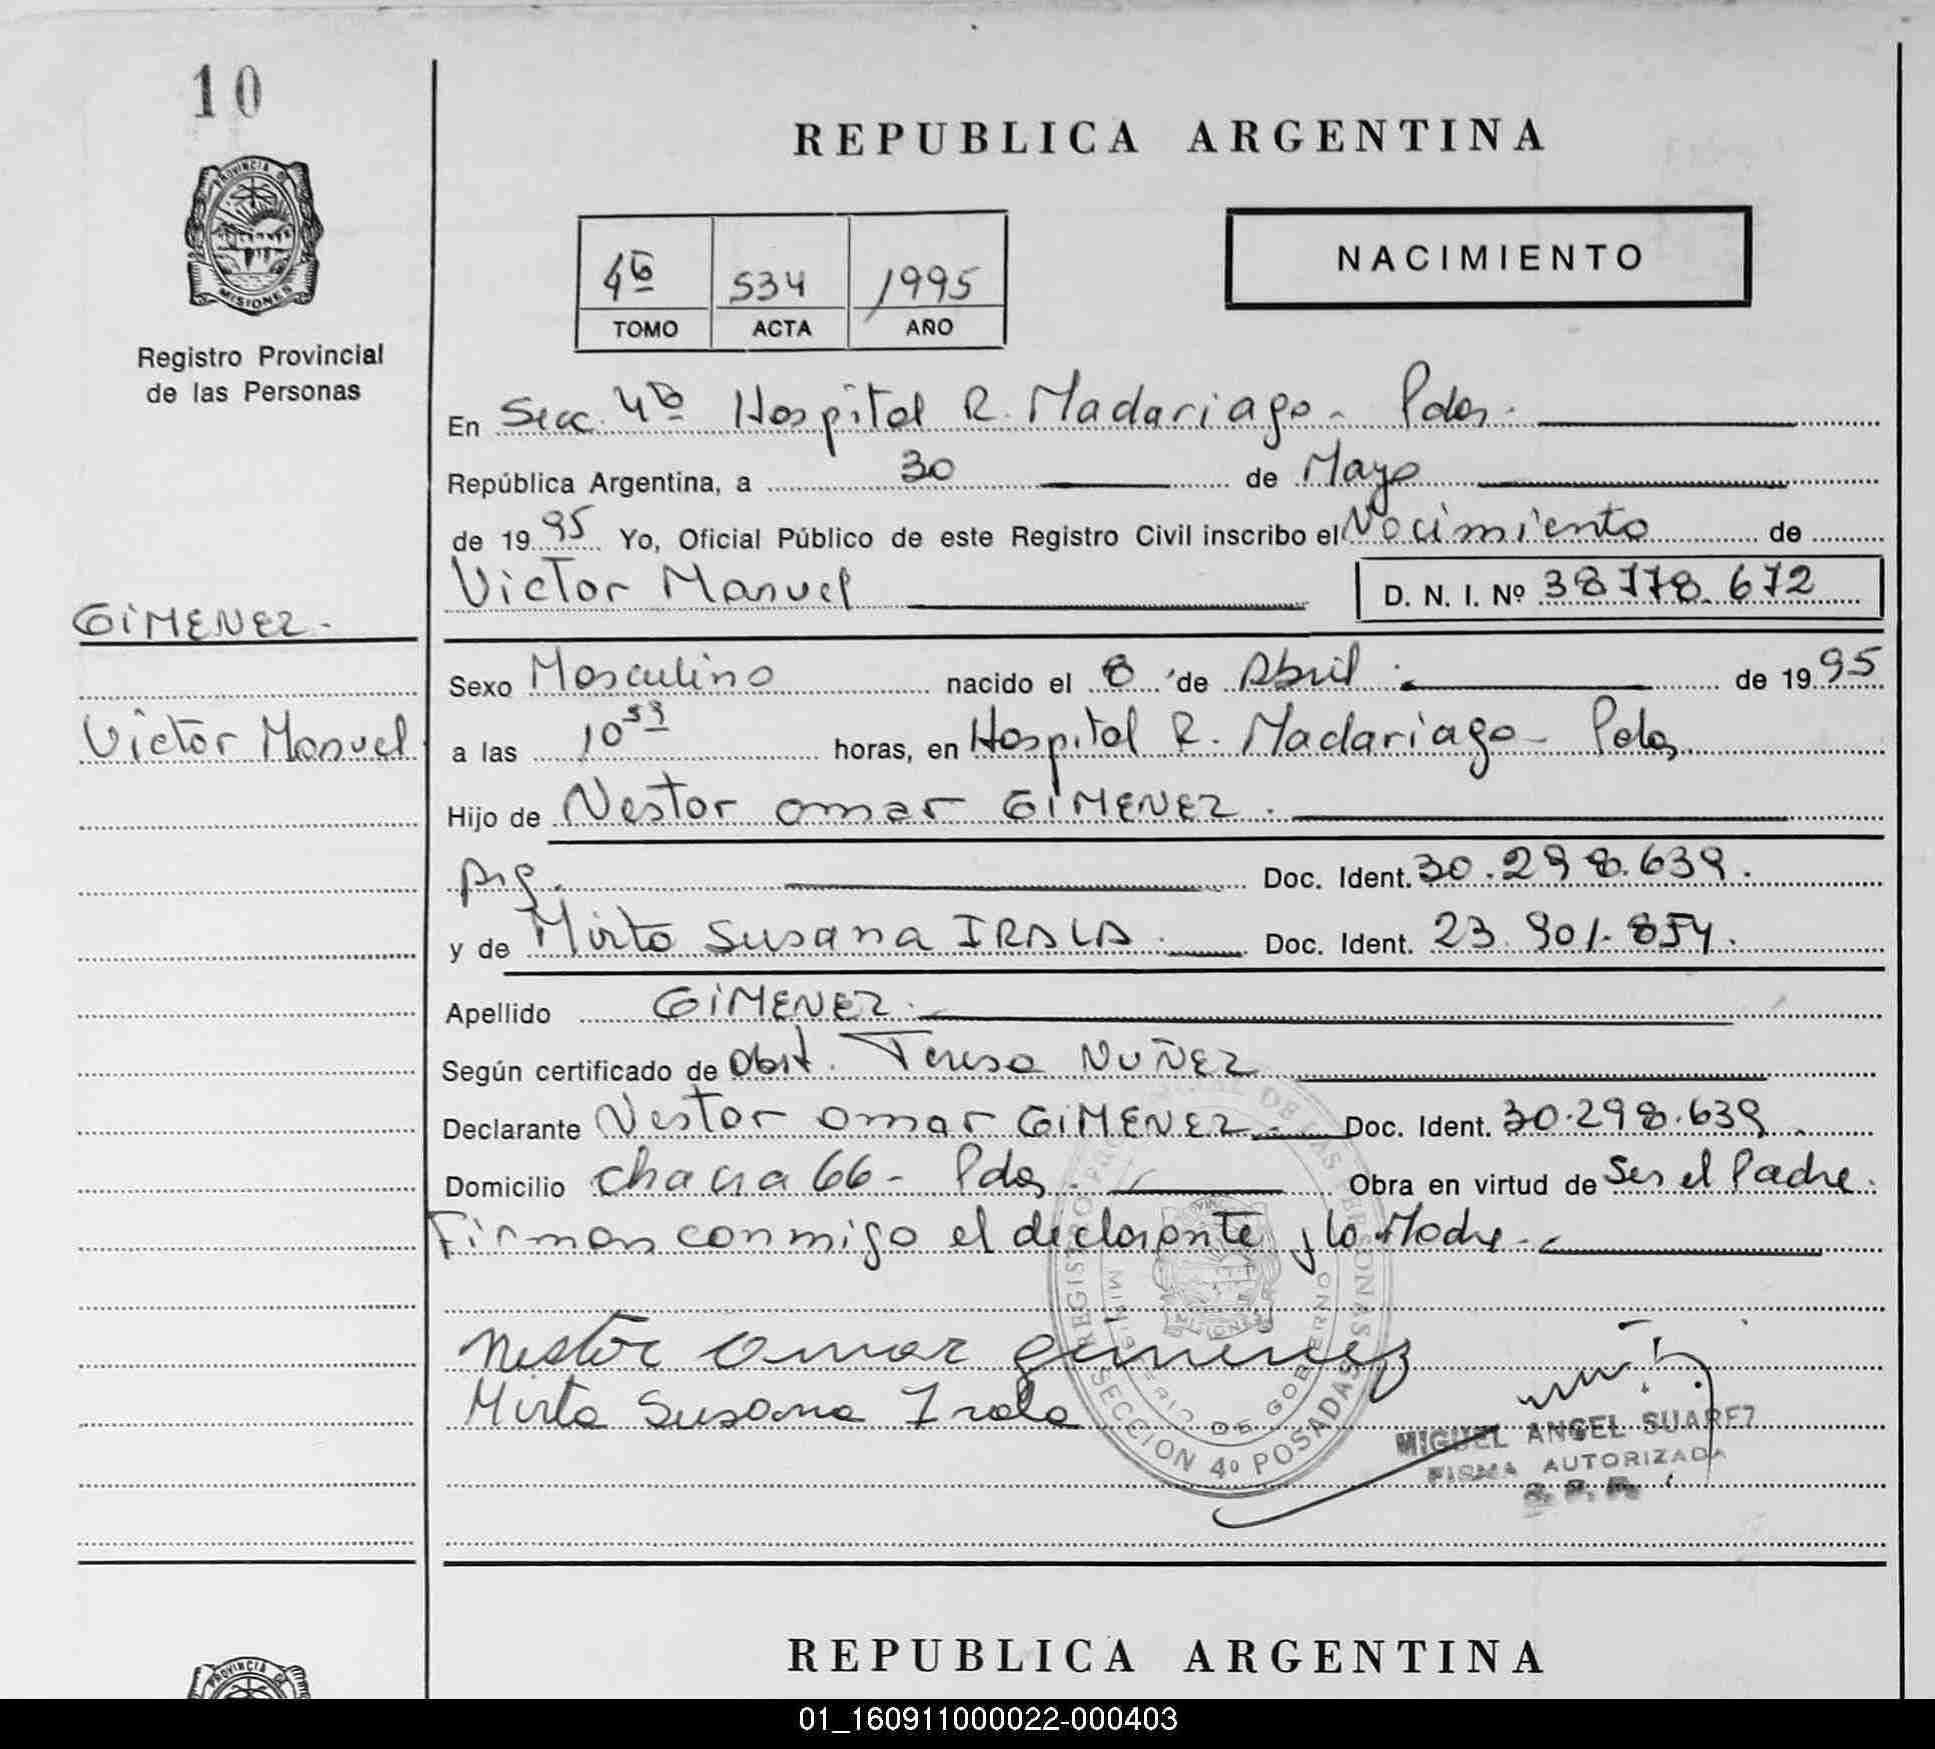 10
PROVINCIA DE
MISIONES
Registro Provincial
de las Personas
REPUBLICA ARGENTINA
NACIMIENTO
534 1995
TOMO ACTA AÑO
En Secc. 4ª Hospital R. Madariaga - Pdas.
República Argentina, a 30 de Mayo
de 1995 Yo, Oficial Público de este Registro Civil inscribo el Nacimiento de
Victor Manuel D. N. I. Nº 38.778.672
GIMENEZ.-
Sexo Masculino nacido el 8 de Abril de 1995
Victor Manuel
a las 10 horas, en Hospital R. Madariaga - Pdas
Hijo de Nestor Omar GIMENEZ.
arg. Doc. Ident. 30.298.639.
y de Mirta Susana IRALA. Doc. Ident. 23.901.854.
Apellido GIMENEZ.
Según certificado de Obst. Teresa NUÑEZ
Declarante Nestor Omar GIMENEZ.- Doc. Ident. 30.298.639.
Domicilio chacra 66 - Pdas. Obra en virtud de Ser el Padre.
Firman conmigo el declarante y la Madre.-
Nestor Omar Gimenez
Mirta Susana Irala
DE LAS PERSONAS
MINISTERIO DE GOBIERNO
SECCION 4º POSADAS
MIGUEL ANGEL SUAREZ
FIRMA AUTORIZADA
REPUBLICA ARGENTINA
PROVINCIA DE
01_160911000022-000403